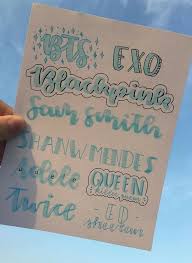 BTS EXO
Blackpink
Sam Smith
SHAWN MENDES
adele
QUEEN
killer queen
twice
ED
sheeran